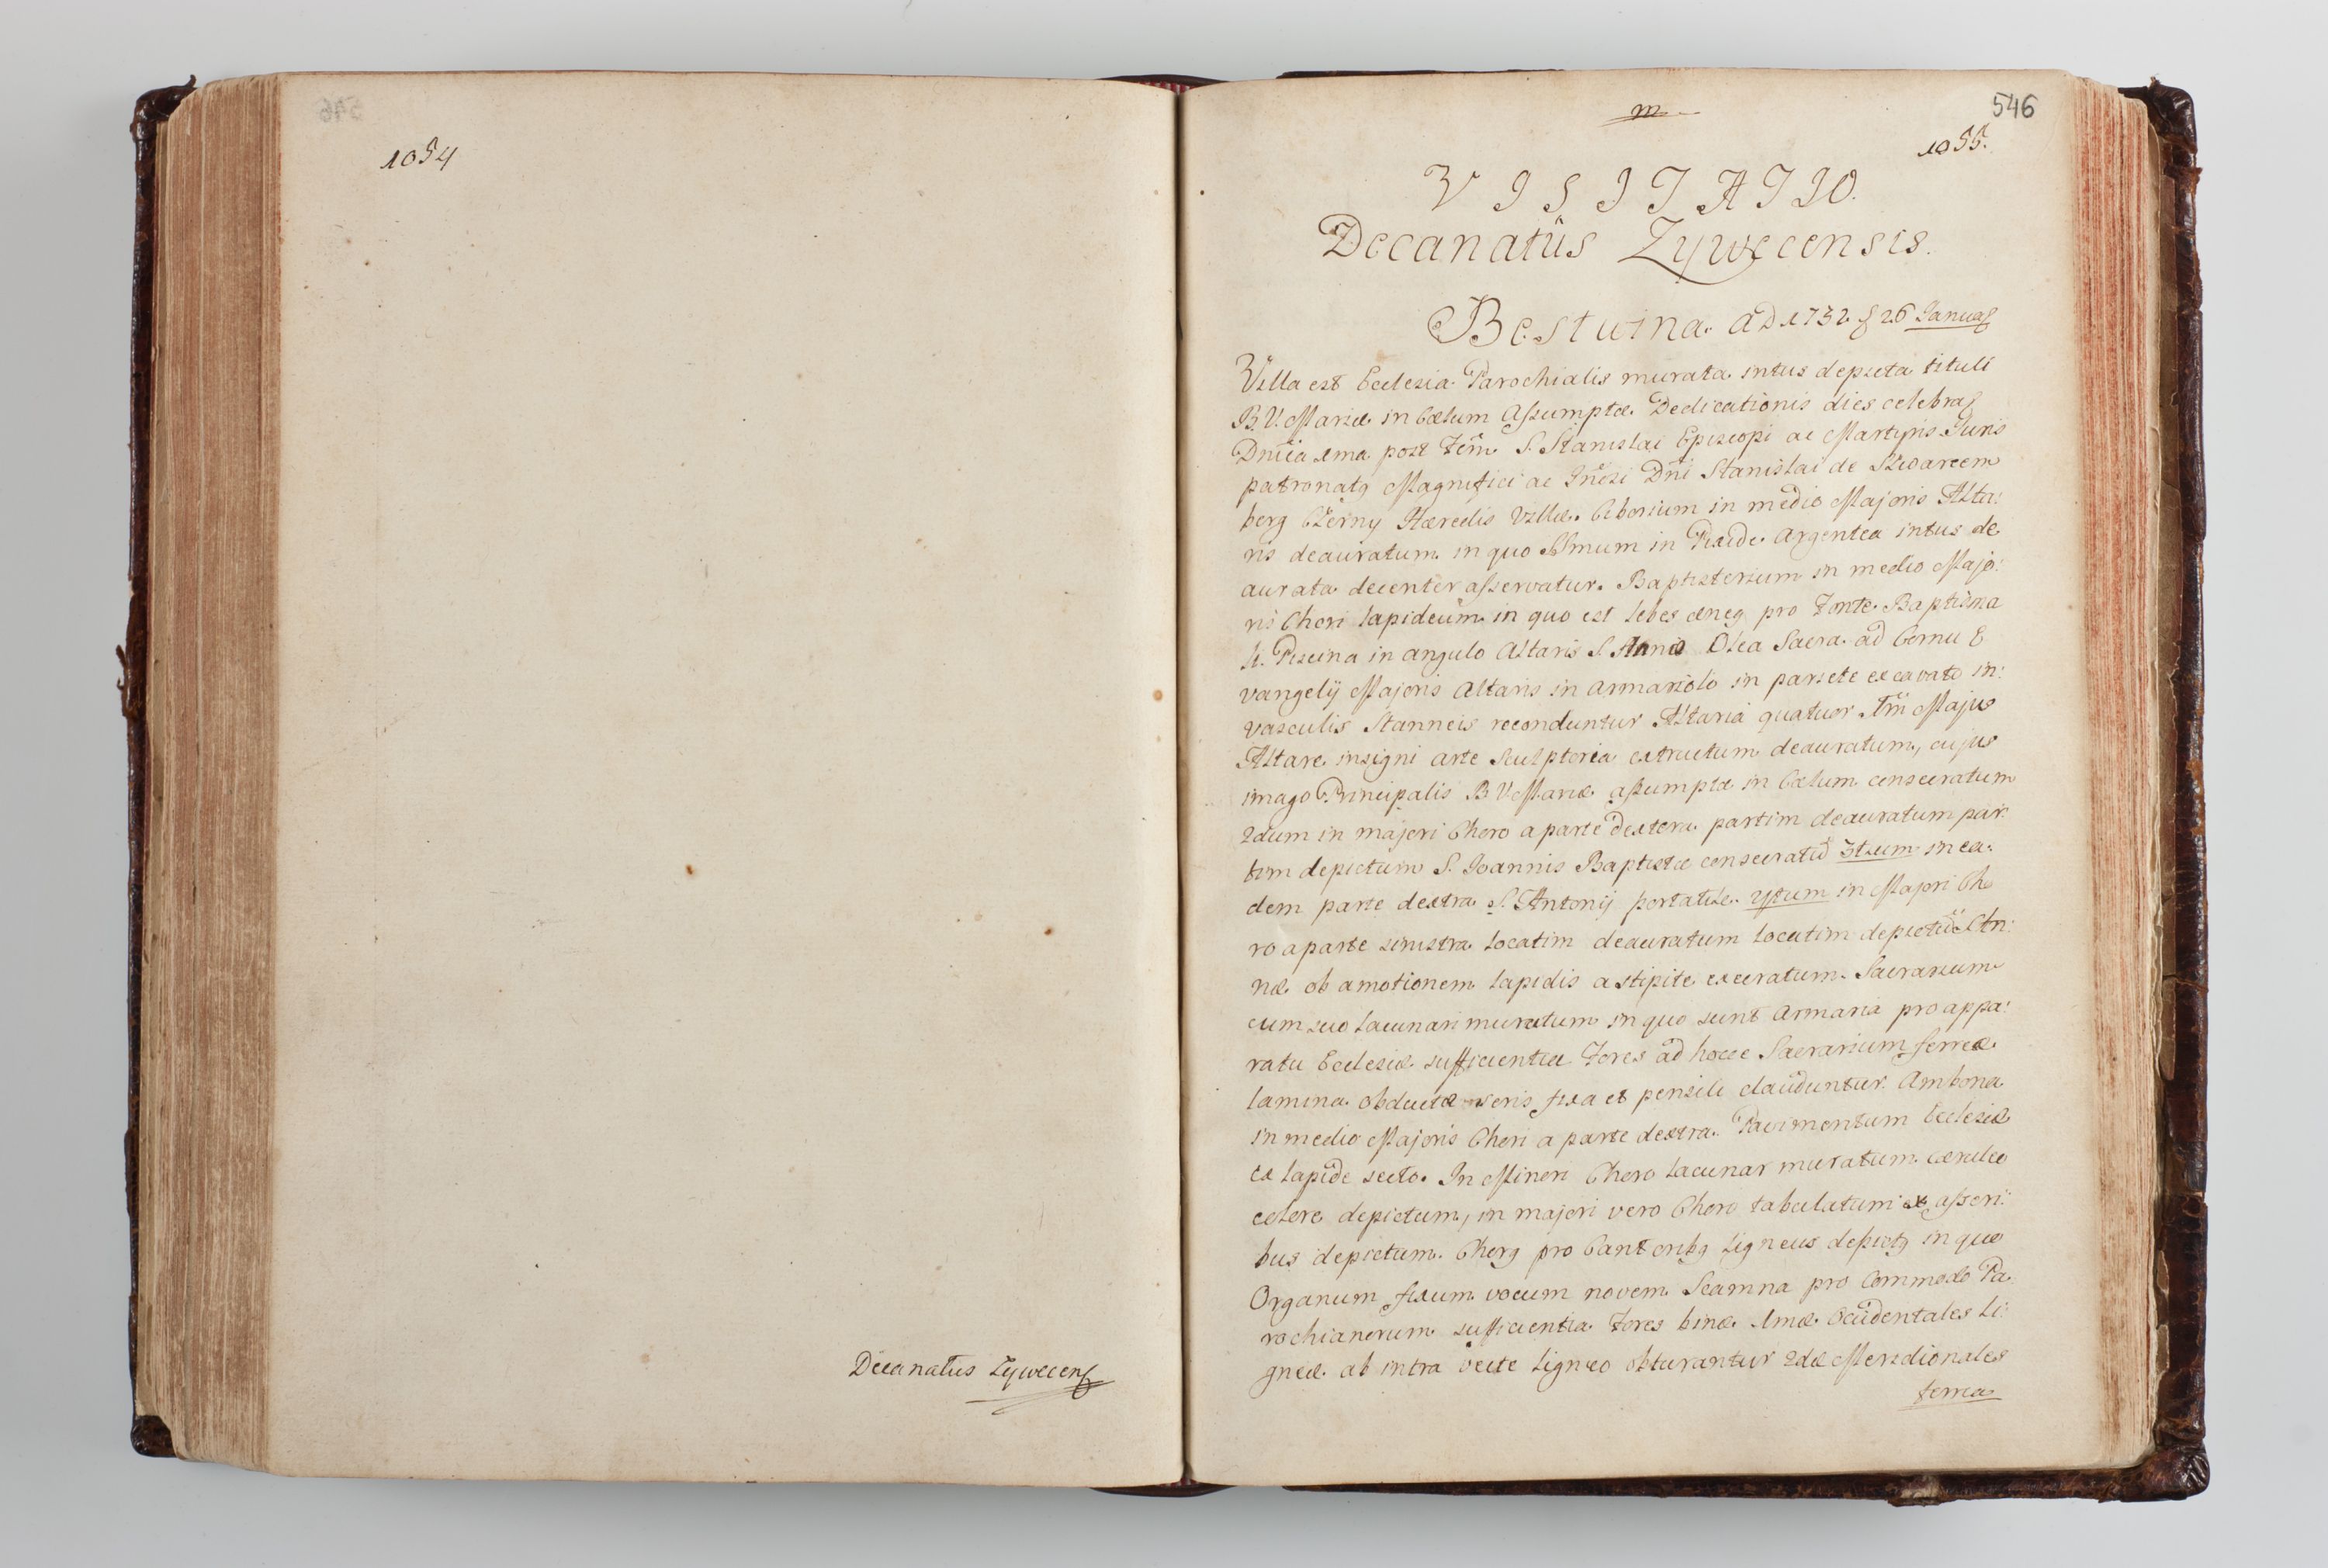 1054
Decanatus Zywecens
546
m
1055.
VISITATIO.
Decanatûs Zywecensis.
Bestwina. AD 1732. 26 Januar
Villa est Ecclesia Parochialis murata intus depicta tituli
B.V. Mariæ in Cælum Assumptæ. Dedicationis dies celebra
Dnica 1ma post Fem S. Stanislai Episcopi ac Martyris Juris
patronatq Magnifici ac Dni Stanislai de
berg Czerny Hæredis Villæ. Ciborium in medio Majoris Alta:
ris deauratum in quo SSmum in Pixide Argentea intus de
aurata decenter asservatur. Baptisterium in medio Majo:
ris Chori lapideum in quo est lebes æneq pro Fonte Baptisma
li. Piscina in angulo Altaris S. Annæ Olea Sacra ad Cornu E
vangelij Majoris Altaris in Armariolo in pariete excavato in:
vasculis Stanneis reconduntur Altaria quatuor Majus
Altare insigni arte Sculptoria extructum deauratum, cujus
imago Principalis B V Mariæ assumptæ in Cælum consecratum
2dum in majori Choro a parte dextera partim deauratum par:
tim depictum S. Joannis Baptistæ consecratũ 3tium in ea:
dem parte dextra S. Antonij portatile. 4tum in Majori Cho
ro a parte sinistra locatim deauratum locatim depictũ S An:
næ ob amotionem lapidis a stipite execratum. Sacrarium
cum suo lacunari muratum in quo sunt Armaria pro appa:
ratu Ecclesiæ sufficientia Fores ad hocce Sacrarium ferrea
lamina obductæ seris fixa et pensili clauduntur. Ambona
in medio Majoris Chori a parte dextra. Pavimentum Ecclesiæ
ex lapide secto. In Minori Choro lacunar muratum cæruleo
colore depictum, in majori vero Choro tabulatum ex asseri:
bus depictum. Chorq pro Cantoribq ligneus depictq in quo
Organum fixum vocum novem. Scamna pro Commodo Pa:
rochianorum sufficientia. Fores binæ. 1mæ Occidentales li:
gneæ ab intra vecte ligneo obturantur 2dæ Meridionales
ferrea